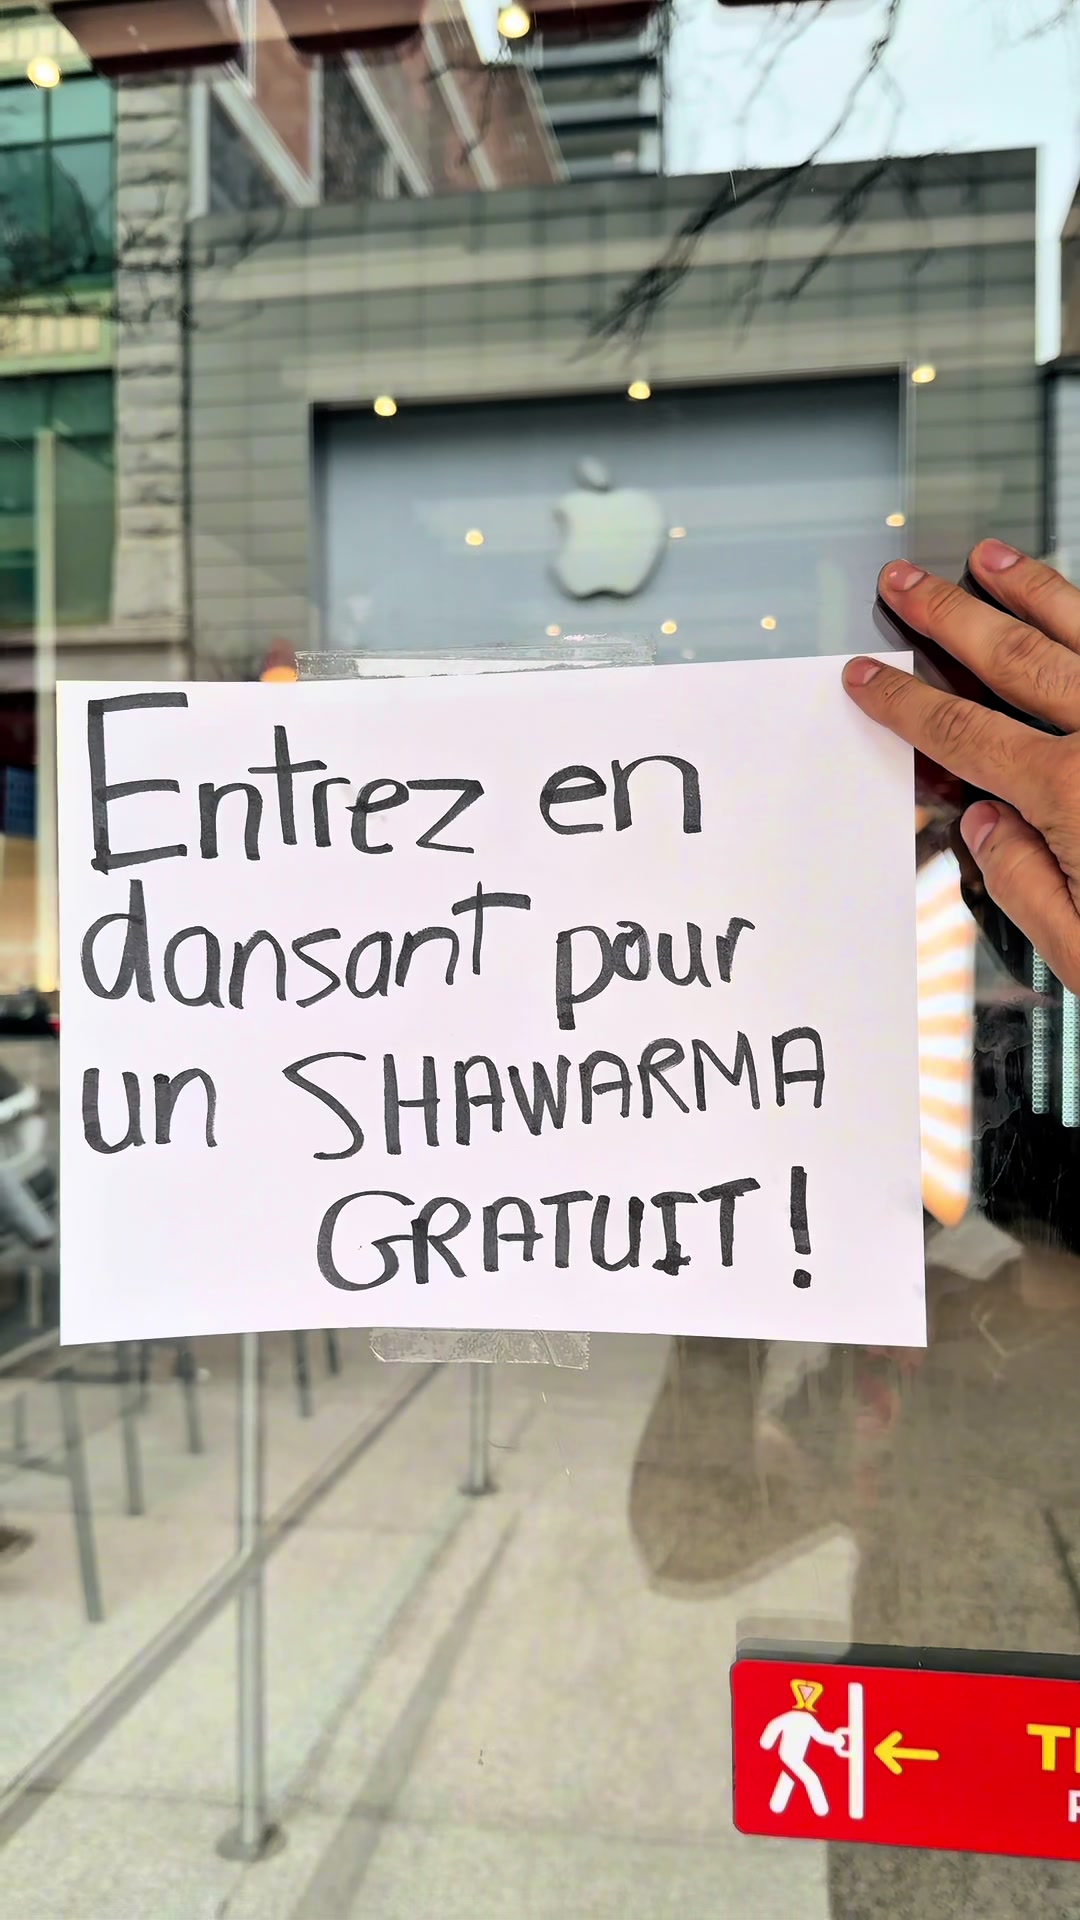 Entrez en
dansant pour
un SHAWARMA
GRATUIT!